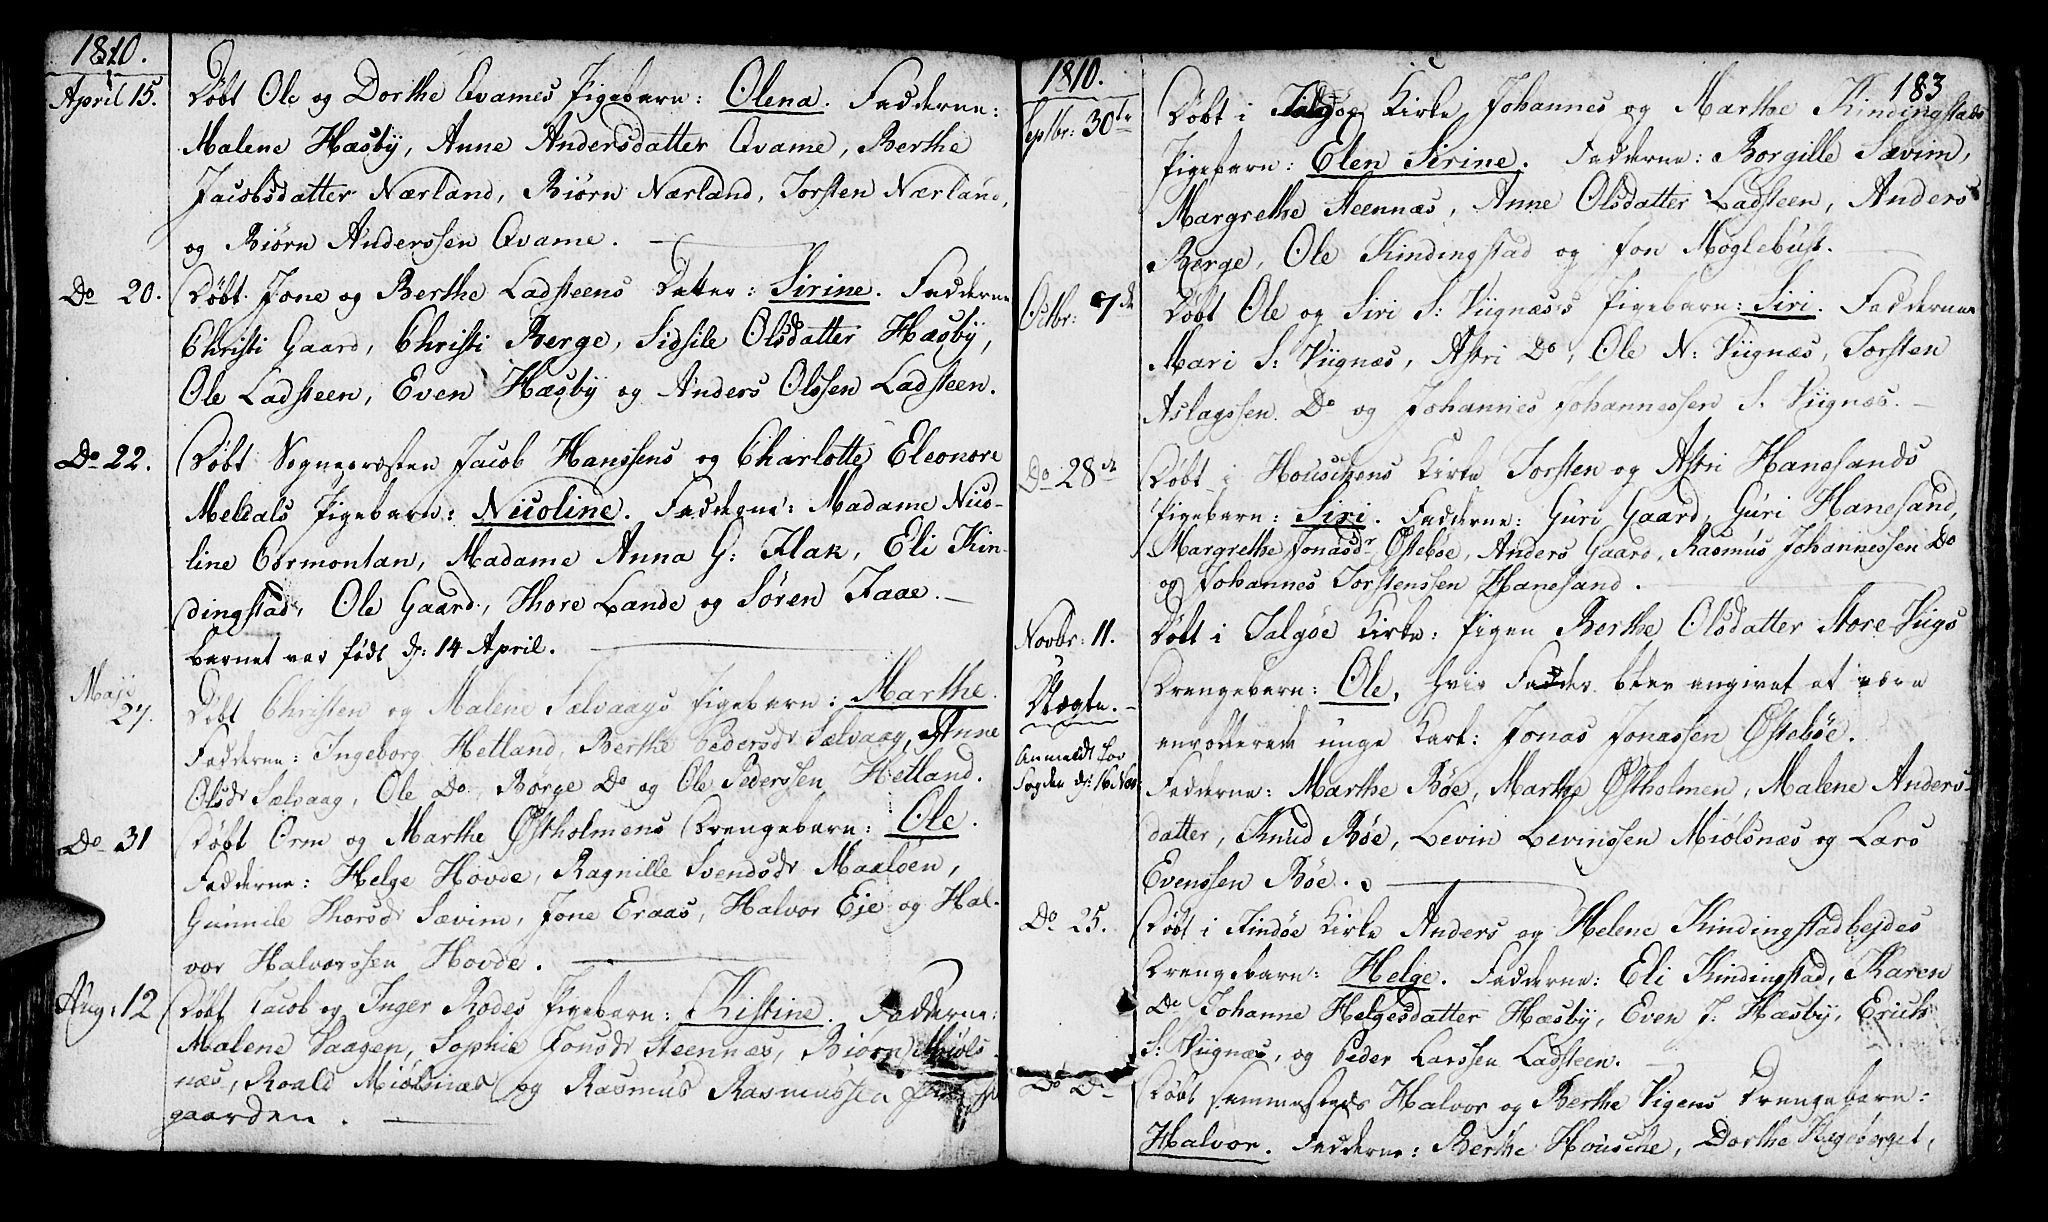 1810.
April 15. Døbt Ole og Dorthe Qvames Pigebarn: Olena. Fadderne:
Malene Hæsby, Anne Andersdatter Qvame, Berthe
Jacobsdatter Nærland, Biørn Nærland, Torsten Nærland,
og Biørn Anderssen Qvame.
Do 20. Døbt Jone og Berthe Ladsteens Datter: Sirine. Fadderne
Christi Gaard, Christi Berge, Sidsile Olsdatter Hæsby,
Ole Ladsteen, Even Hæsby og Anders Olssen Ladsteen.
Do 22. Døbt Sognepræsten Jacob Hanssens og Charlotte Eleonore
Meldals Pigebarn: Nicoline. Fadderne: Madame Nico-
line Cormontan, Madame Anna G: Flak, Eli Kin-
dingstad, Ole Gaard, Thore Lande og Søren Faae.
barnet var født d: 14 April.
Maji 27. Døbt Christen og Malene Sælvaags Pigebarn: Marthe.
Fadderne: Ingeborg Hetland, Berthe Pedersdr Sælvaag, Anne
Olsdr Sælvaag, Ole Do, Børge Do og Ole Pederssen Hetland.
Do 31 Døbt Orm og Marthe Østholmens Drengebarn: Ole.
Fadderne: Helge Hovde, Ragnille Svendsdr Maaløen,
Gunnile Thorsdr Sævim, Jone Eraas, Halvor Eje og Hal-
vor Halvorssen Hovde.
Aug: 12 Døbt Jacob og Inger Rødes Pigebarn: Kistine. Fadderne:
Malene Vaagen, Sophie Jonsdr Steennæs, Biørn Miøls-
næs, Roald Miølsnæs og Rasmus Rasmussen
gaarden.
183
1810.
Septbr: 30te Døbt i Talgøe Kirke Johannes og Marthe Kindingstads
Pigebarn: Elen Sirine. Fadderne: Borgille Sævim,
Margrethe Steennæs, Anne Olsdatter Ladsteen, Anders
Berge, Ole Kindingstad og Jon Moglebust.
Octbr: 7de Døbt Ole og Siri S: Viignæss Pigebarn: Siri. Fadderne
Mari S: Viignæs, Astri Do, Ole N: Viignæs, Torsten
Aslagssen Do og Johannes Johannessen S. Viignæs.
Do 28de Døbt i Houschens Kirke Torsten og Astri Hanesands
Pigebarn: Siri. Fadderne: Guri Gaard, Guri Hanesand,
Margrethe Jonasdr Østebøe, Anders Gaard, Rasmus Johannessen Do
og Johannes Torstenssen Hanesand.
Novbr: 11. Døbt i Talgøe Kirke: Pigen Berthe Olsdatter Store Viigs
Uægte. Drengebarn: Ole, hvis Fader blev angivet at være
envollerede unge Karl: Jonas Jonassen Østebøe.
Anmeldt for
Fogden d: 16 Nov:
Fadderne: Marthe Bøe, Marthe Østholmen, Malene Anders-
datter, Knud Bøe, Levin Levinssen Miølsnæs og Lars
Evenssen Bøe.
Do 25. Døbt i Findøe Kirke Anders og Helene Kindingstadhejdes
Drengebarn: Helge. Fadderne: Eli Kindingstad, Karen
Do Johanne Helgesdatter Hæsby, Even J: Hæsby, Erich
S: Viignæs, og Peder Larssen Ladsteen.
Do Do Døbt sammesteds Halvor og Berthe Vigens Drengebarn:
Halvor. Fadderne: Berthe Housche, Dorthe